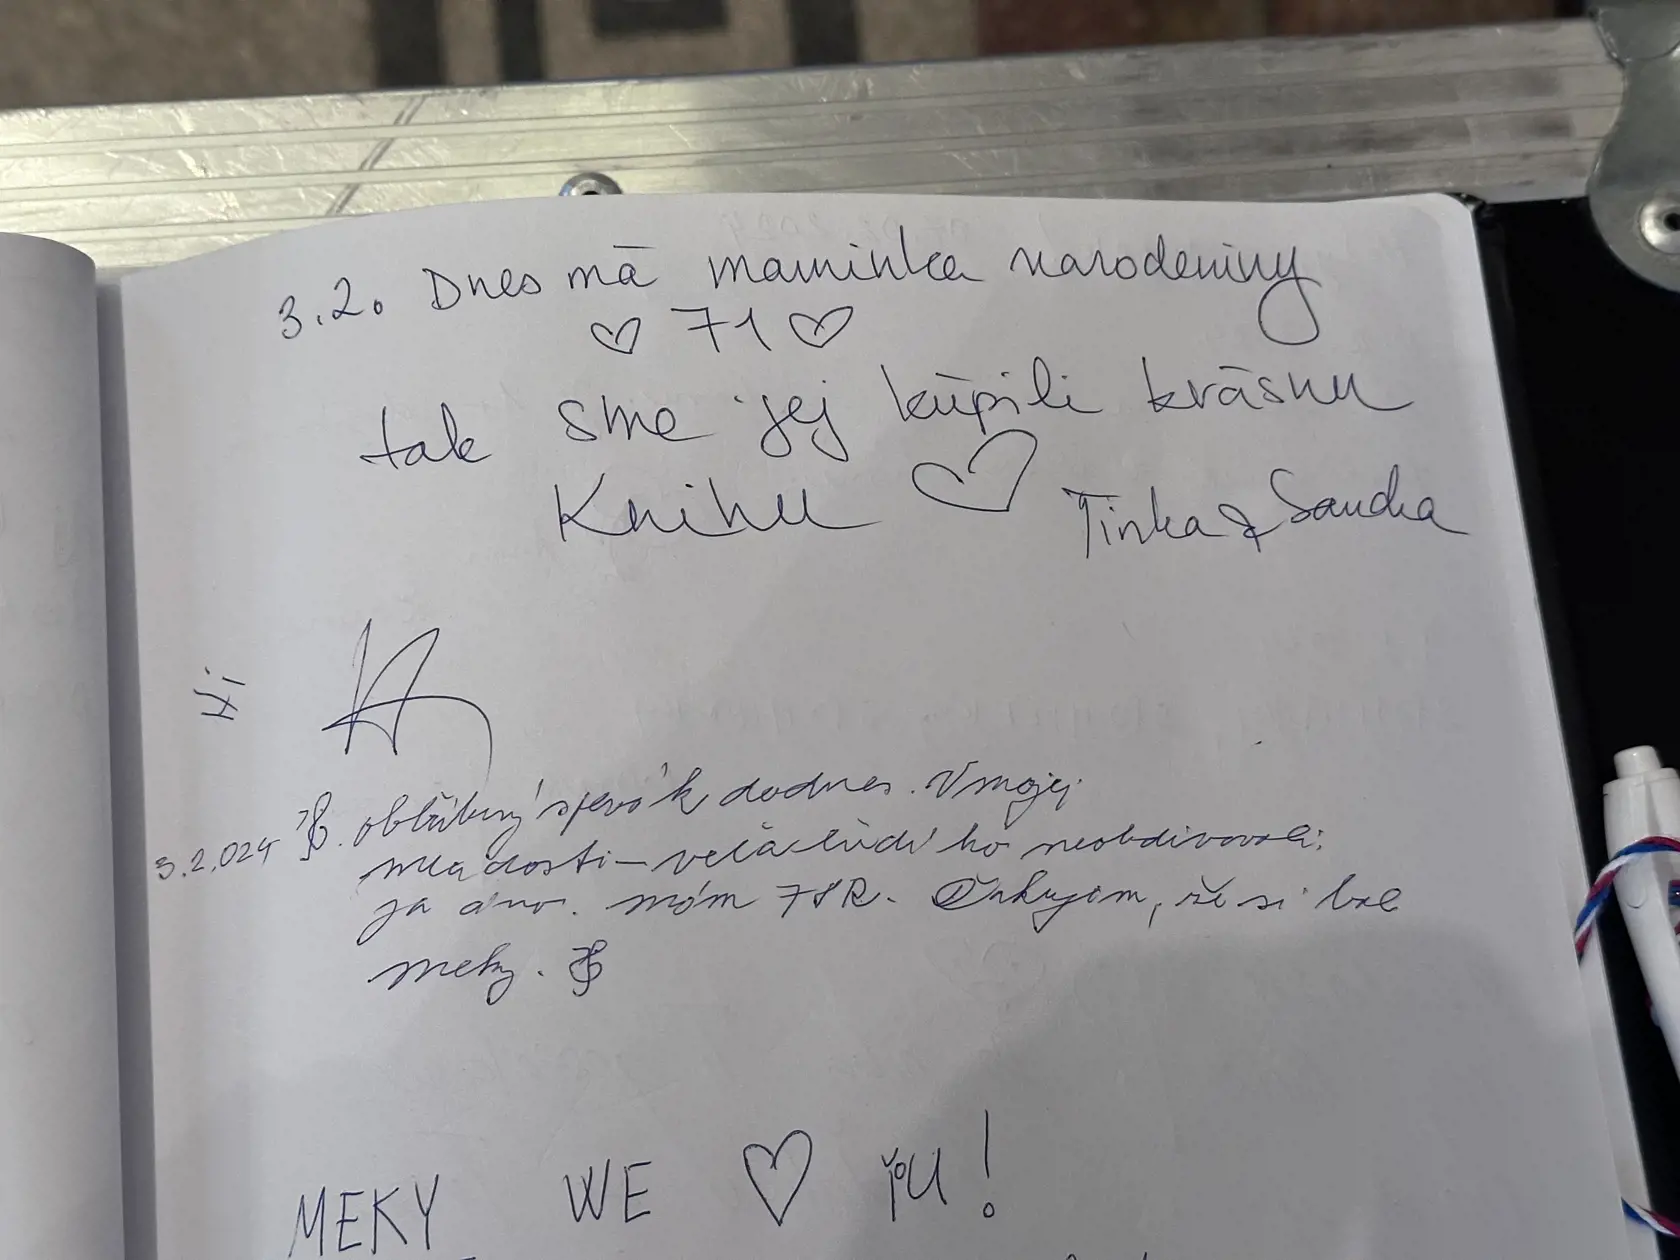 3.2. Dnes má maminka narodeniny
♡ 71 ♡
tak sme jej kúpili krásnu
Knihu ♡ Tinka & Sandra
Hi
3.2.024 obľúbený spevák dodnes. V mojej
mladosti – veľa ľudí ho neobdivovali;
ja áno. mám 78R. Ďakujem, že si bol
meky.
MEKY WE ♡ YOU!